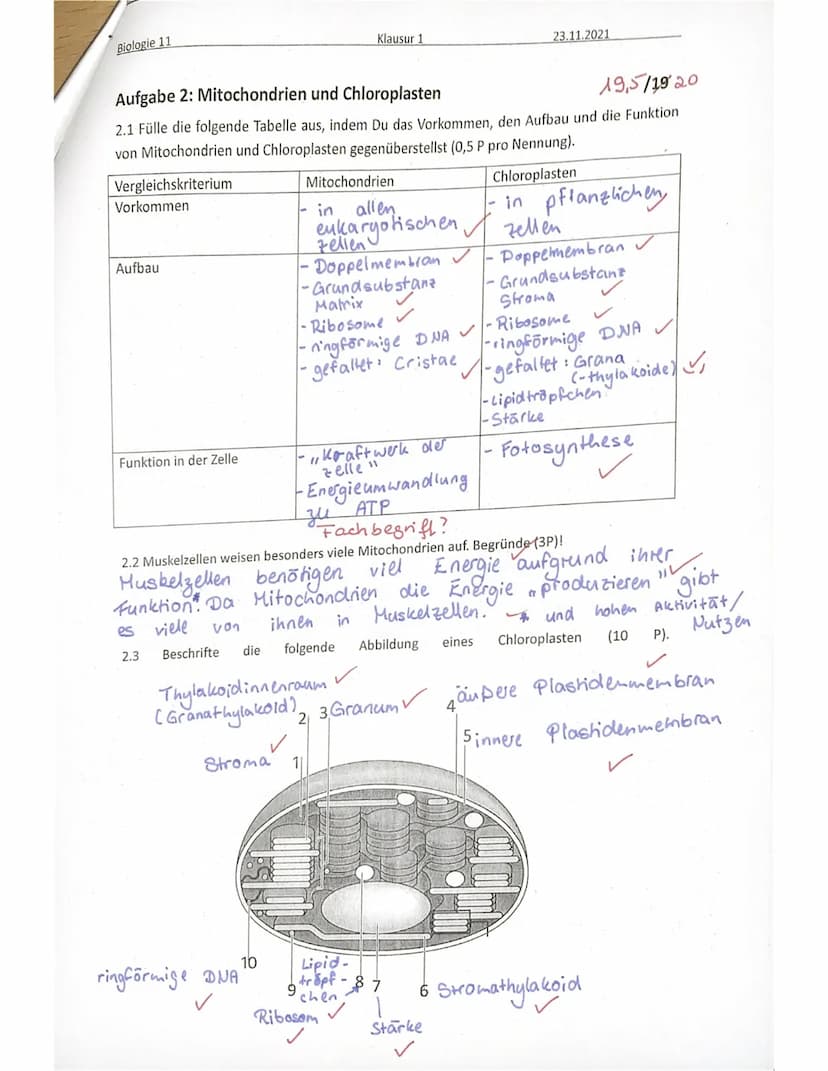 Biologie 11 Klausur 1 23.11.2021
Aufgabe 2: Mitochondrien und Chloroplasten 19,5/19 20
2.1 Fülle die folgende Tabelle aus, indem Du das Vorkommen, den Aufbau und die Funktion
von Mitochondrien und Chloroplasten gegenüberstellst (0,5 P pro Nennung).
Vergleichskriterium Mitochondrien Chloroplasten
Vorkommen
- in allen
eukaryotischen
Zellen
- in pflanzlichen
Zellen
Aufbau
- Doppelmembran
- Grundsubstanz
Matrix
- Ribosome
- ringförmige DNA
- gefaltet: Cristae
- Doppelmembran
- Grundsubstanz
Stroma
- Ribosome
- ringförmige DNA
- gefaltet: Grana
(-thylakoide)
- Lipidtröpfchen
- Stärke
Funktion in der Zelle
- „Kraftwerk der
Zelle"
- Energieumwandlung
zu ATP
- Fotosynthese
Fachbegriff?
2.2 Muskelzellen weisen besonders viele Mitochondrien auf. Begründe (3P)!
Muskelzellen benötigen viel Energie aufgrund ihrer
Funktion*. Da Mitochondrien die Energie „produzieren" gibt
es viele von ihnen in Muskelzellen. * und hohen Aktivität/
Nutzen
2.3 Beschrifte die folgende Abbildung eines Chloroplasten (10 P).
Thylakoidinnenraum
(Granathylakoid)
2 3 Granum
4 äußere Plastidenmembran
5 innere Plastidenmembran
Stroma 1
10
ringförmige DNA
9
Ribosom
Lipid-
tröpf-
chen
8 7
Stärke
6 Stromathylakoid